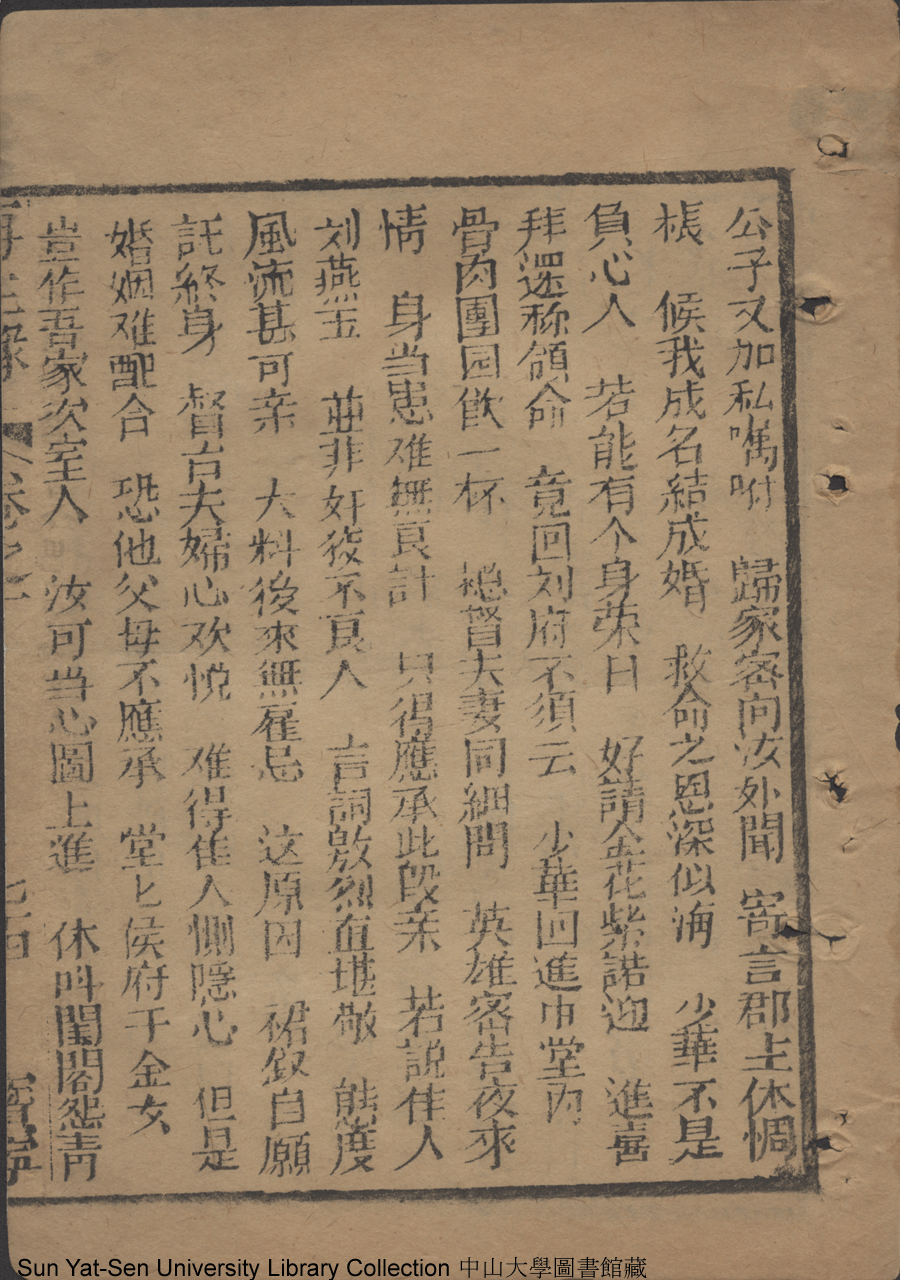 公子又加私嘱咐　歸家密向汝外聞　寄言郡主休惆
悵　候我成名結成婚　救命之恩深似海　少華不是
負心人　若能有个身荣日　好請金花紫誥迎　進喜
拜還称領命　竟回刘府不須云　少華回進中堂内
骨肉團园飲一杯　總督夫妻同細問　英雄密告夜來
情　身当患难無良計　只得應承此段亲　若説佳人
刘燕玉　並非奸狡不良人　言詞激烈直堪敬　態度
風流甚可亲　大料後來無雇忌　这原因　裙釵自願
託終身　督台夫婦心欢悦　难得佳人惻隱心　但是
婚姻难配合　恐他父母不應承　堂匕侯府千金女
豈作吾家次室人　汝可当心圖上進　休呌閨閣怨青
再生緣　卷之一　七十四　寶寧
Sun Yat-Sen University Library Collection 中山大學圖書館藏